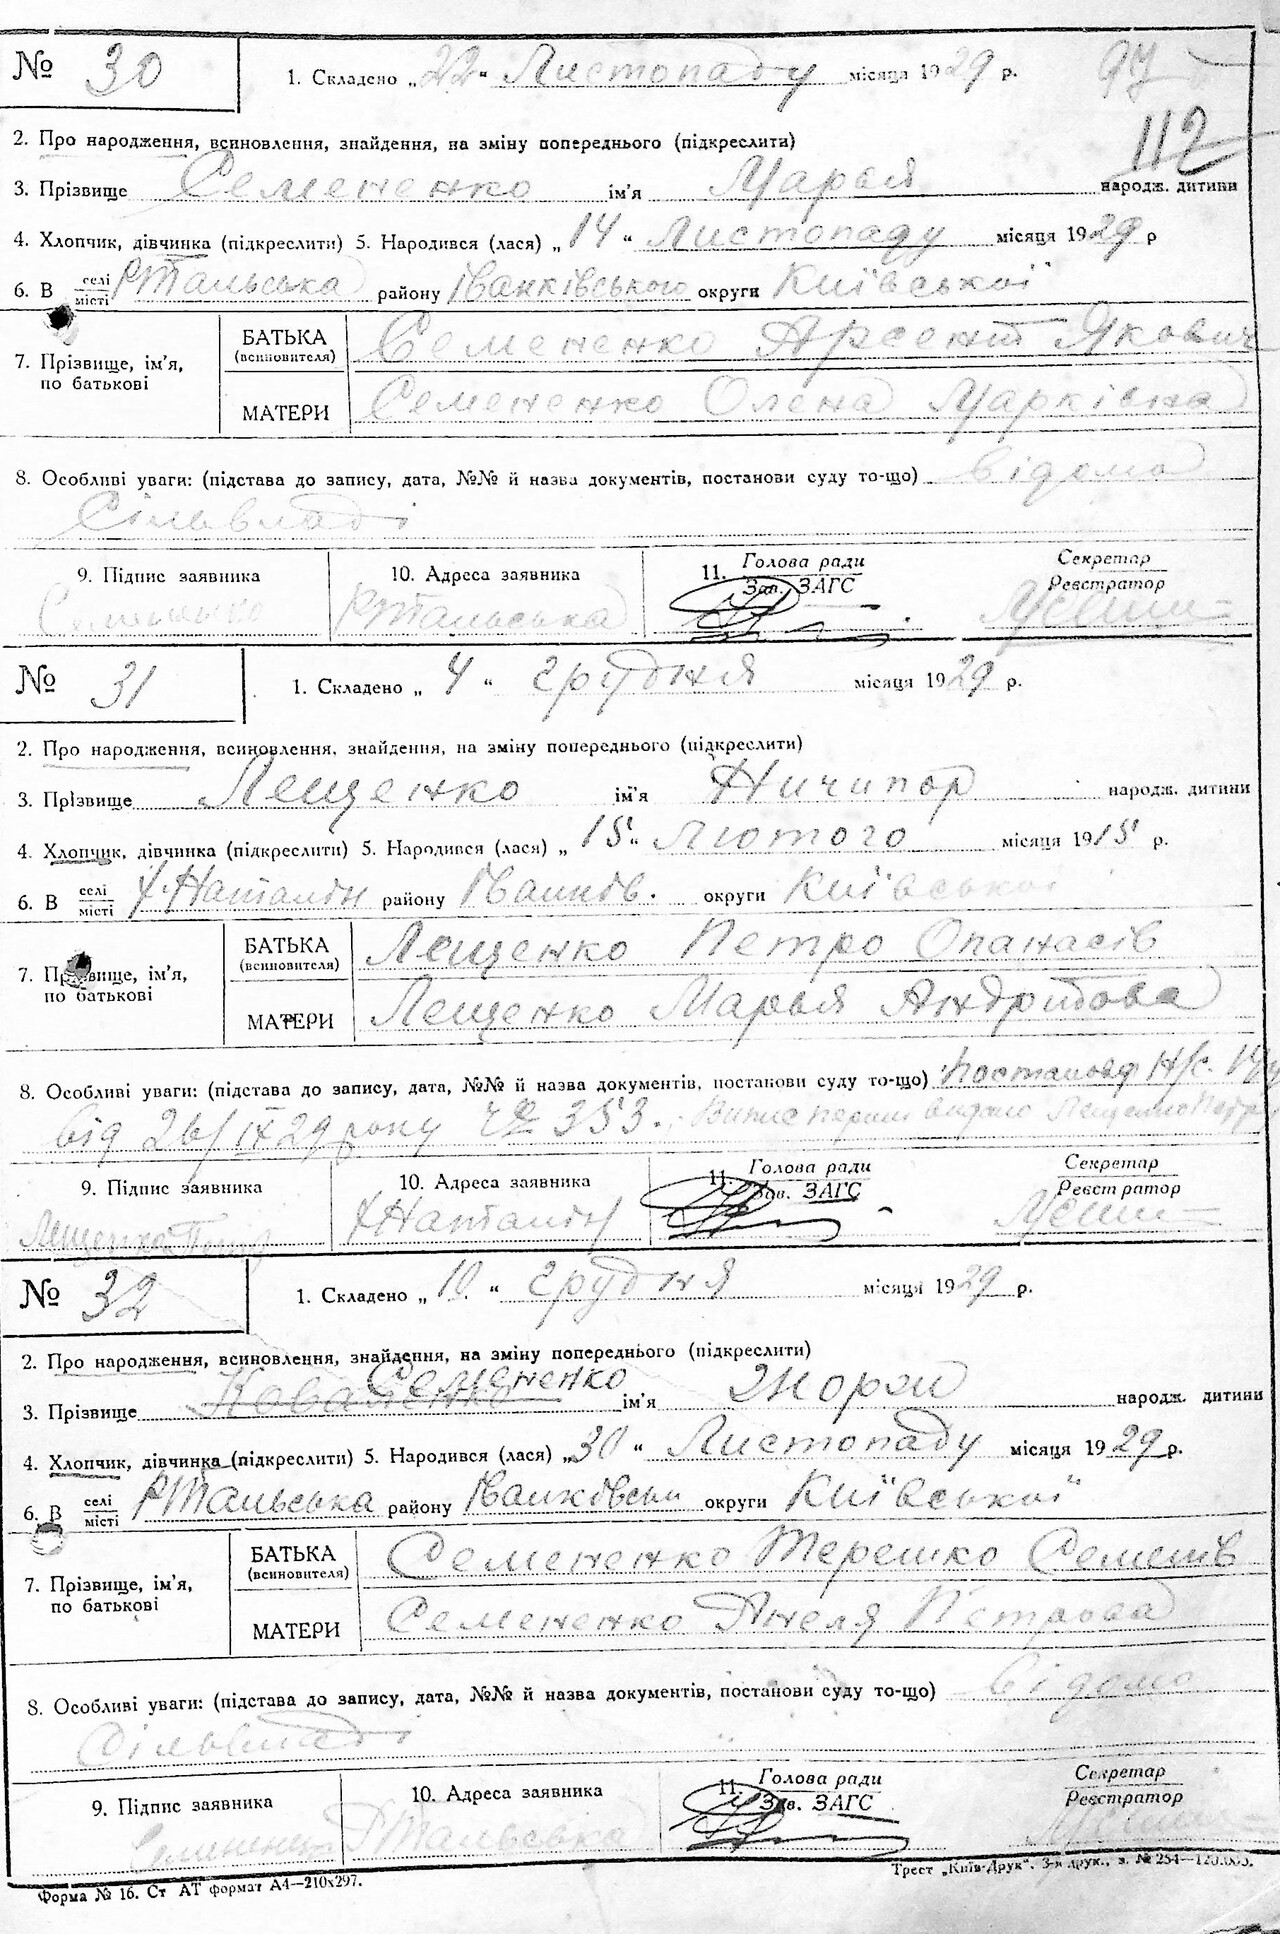 № 30
1. Складено „22“ Листопаду місяця 1929 р.
97
112
2. Про народження, всиновлення, знайдення, на зміну попереднього (підкреслити)
3. Прізвище Семененко ім'я Марья народж. дитини
4. Хлопчик, дівчинка (підкреслити) 5. Народився (лася) „14“ Листопаду місяця 1929 р
6. В селі місті Ртальська району Іванківського округи Київської
7. Прізвище, ім'я, по батькові
БАТЬКА (всиновителя) Семененко Арсент Якович
МАТЕРИ Семененко Олена Марківна
8. Особливі уваги: (підстава до запису, дата, №№ й назва документів, постанови суду то-що) Відомо
Сільвладі
9. Підпис заявника
10. Адреса заявника
11. Голова ради Зав. ЗАГС
Секретар Реєстратор
Семененко Ртальська
№ 31
1. Складено „4“ грудня місяця 1929 р.
2. Про народження, всиновлення, знайдення, на зміну попереднього (підкреслити)
3. Прізвище Лещенко ім'я Ничипор народж. дитини
4. Хлопчик, дівчинка (підкреслити) 5. Народився (лася) „15“ Лютого місяця 1915 р.
6. В селі місті х.Наталін району Іванків. округи Київської
7. Прізвище, ім'я, по батькові
БАТЬКА (всиновителя) Лещенко Петро Опанасів
МАТЕРИ Лещенко Марья Андрітова
8. Особливі уваги: (підстава до запису, дата, №№ й назва документів, постанови суду то-що) Постанова Н/с.
від 26/IX 29 року 353. Видано Лещенко Петру
9. Підпис заявника
10. Адреса заявника
11. Голова ради Зав. ЗАГС
Секретар Реєстратор
Лещенко Петро х Наталін
№ 32
1. Складено „10.“ грудня місяця 1929 р.
2. Про народження, всиновлення, знайдення, на зміну попереднього (підкреслити)
Семененко
3. Прізвище Коваленко ім'я Жорж народж. дитини
4. Хлопчик, дівчинка (підкреслити) 5. Народився (лася) „30“ Листопаду місяця 1929 р.
6. В селі місті Ртальська району Іванковськи округи Київської
7. Прізвище, ім'я, по батькові
БАТЬКА (всиновителя) Семененко Терешко Семенів
МАТЕРИ Семененко Анеля Петрова
8. Особливі уваги: (підстава до запису, дата, №№ й назва документів, постанови суду то-що) Відомо
Сільвладі
9. Підпис заявника
10. Адреса заявника
11. Голова ради Зав. ЗАГС
Секретар Реєстратор
Семененко Ртальська
Форма № 16. Ст АТ формат А4—210х297.
Трест „Київ-Друк“. 3-я друк., з. № 254—120.000.